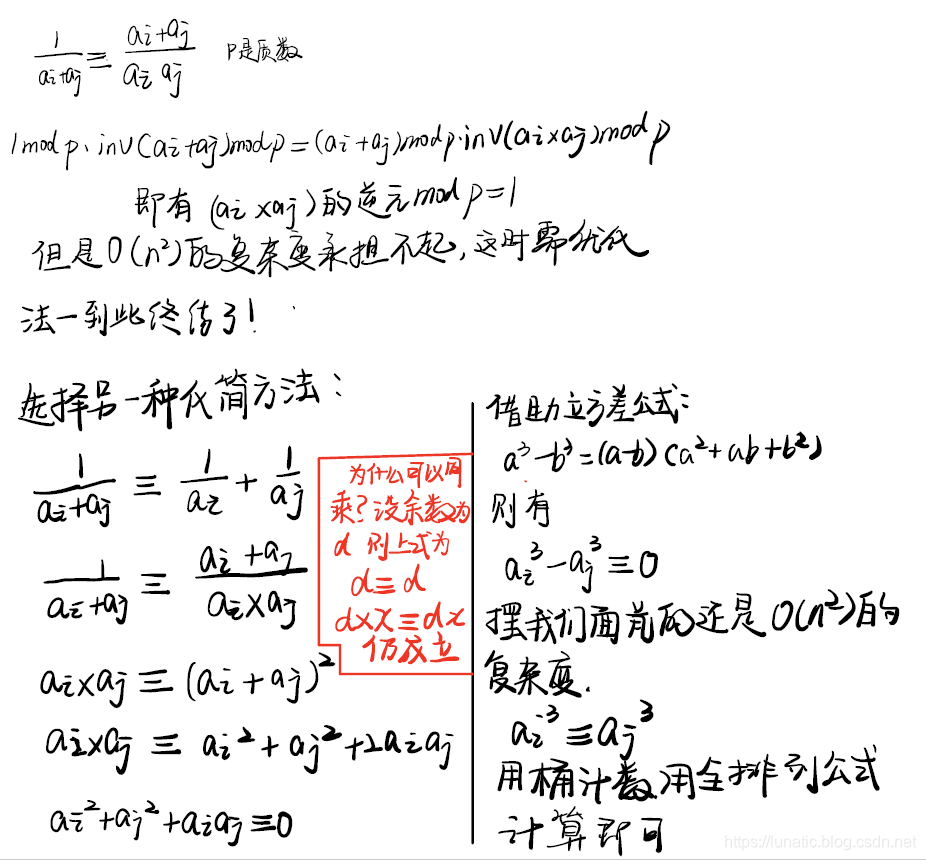 1/(ai+aj) ≡ (ai+aj)/(ai aj) P是质数
1 mod p · inv(ai+aj) mod p = (ai+aj) mod p · inv(ai×aj) mod p
即有 (ai×aj)的逆元 mod p=1
但是O(n²)的复杂度承担不起,这时需优化
法一到此终结了!
选择另一种化简方法:
1/(ai+aj) ≡ 1/ai + 1/aj
1/(ai+aj) ≡ (ai+aj)/(ai×aj)
ai×aj ≡ (ai+aj)²
ai×aj ≡ ai²+aj²+2aiaj
ai²+aj²+aiaj≡0
为什么可以同
乘?设余数为
d 则上式为
d≡d
d×x≡dx
仍成立
借助立方差公式:
a³-b³=(a-b)(a²+ab+b²)
则有
ai³-aj³≡0
摆我们面前的还是O(n²)的
复杂度.
ai³≡aj³
用桶计数,用全排列公式
计算即可
https://lunatic.blog.csdn.net